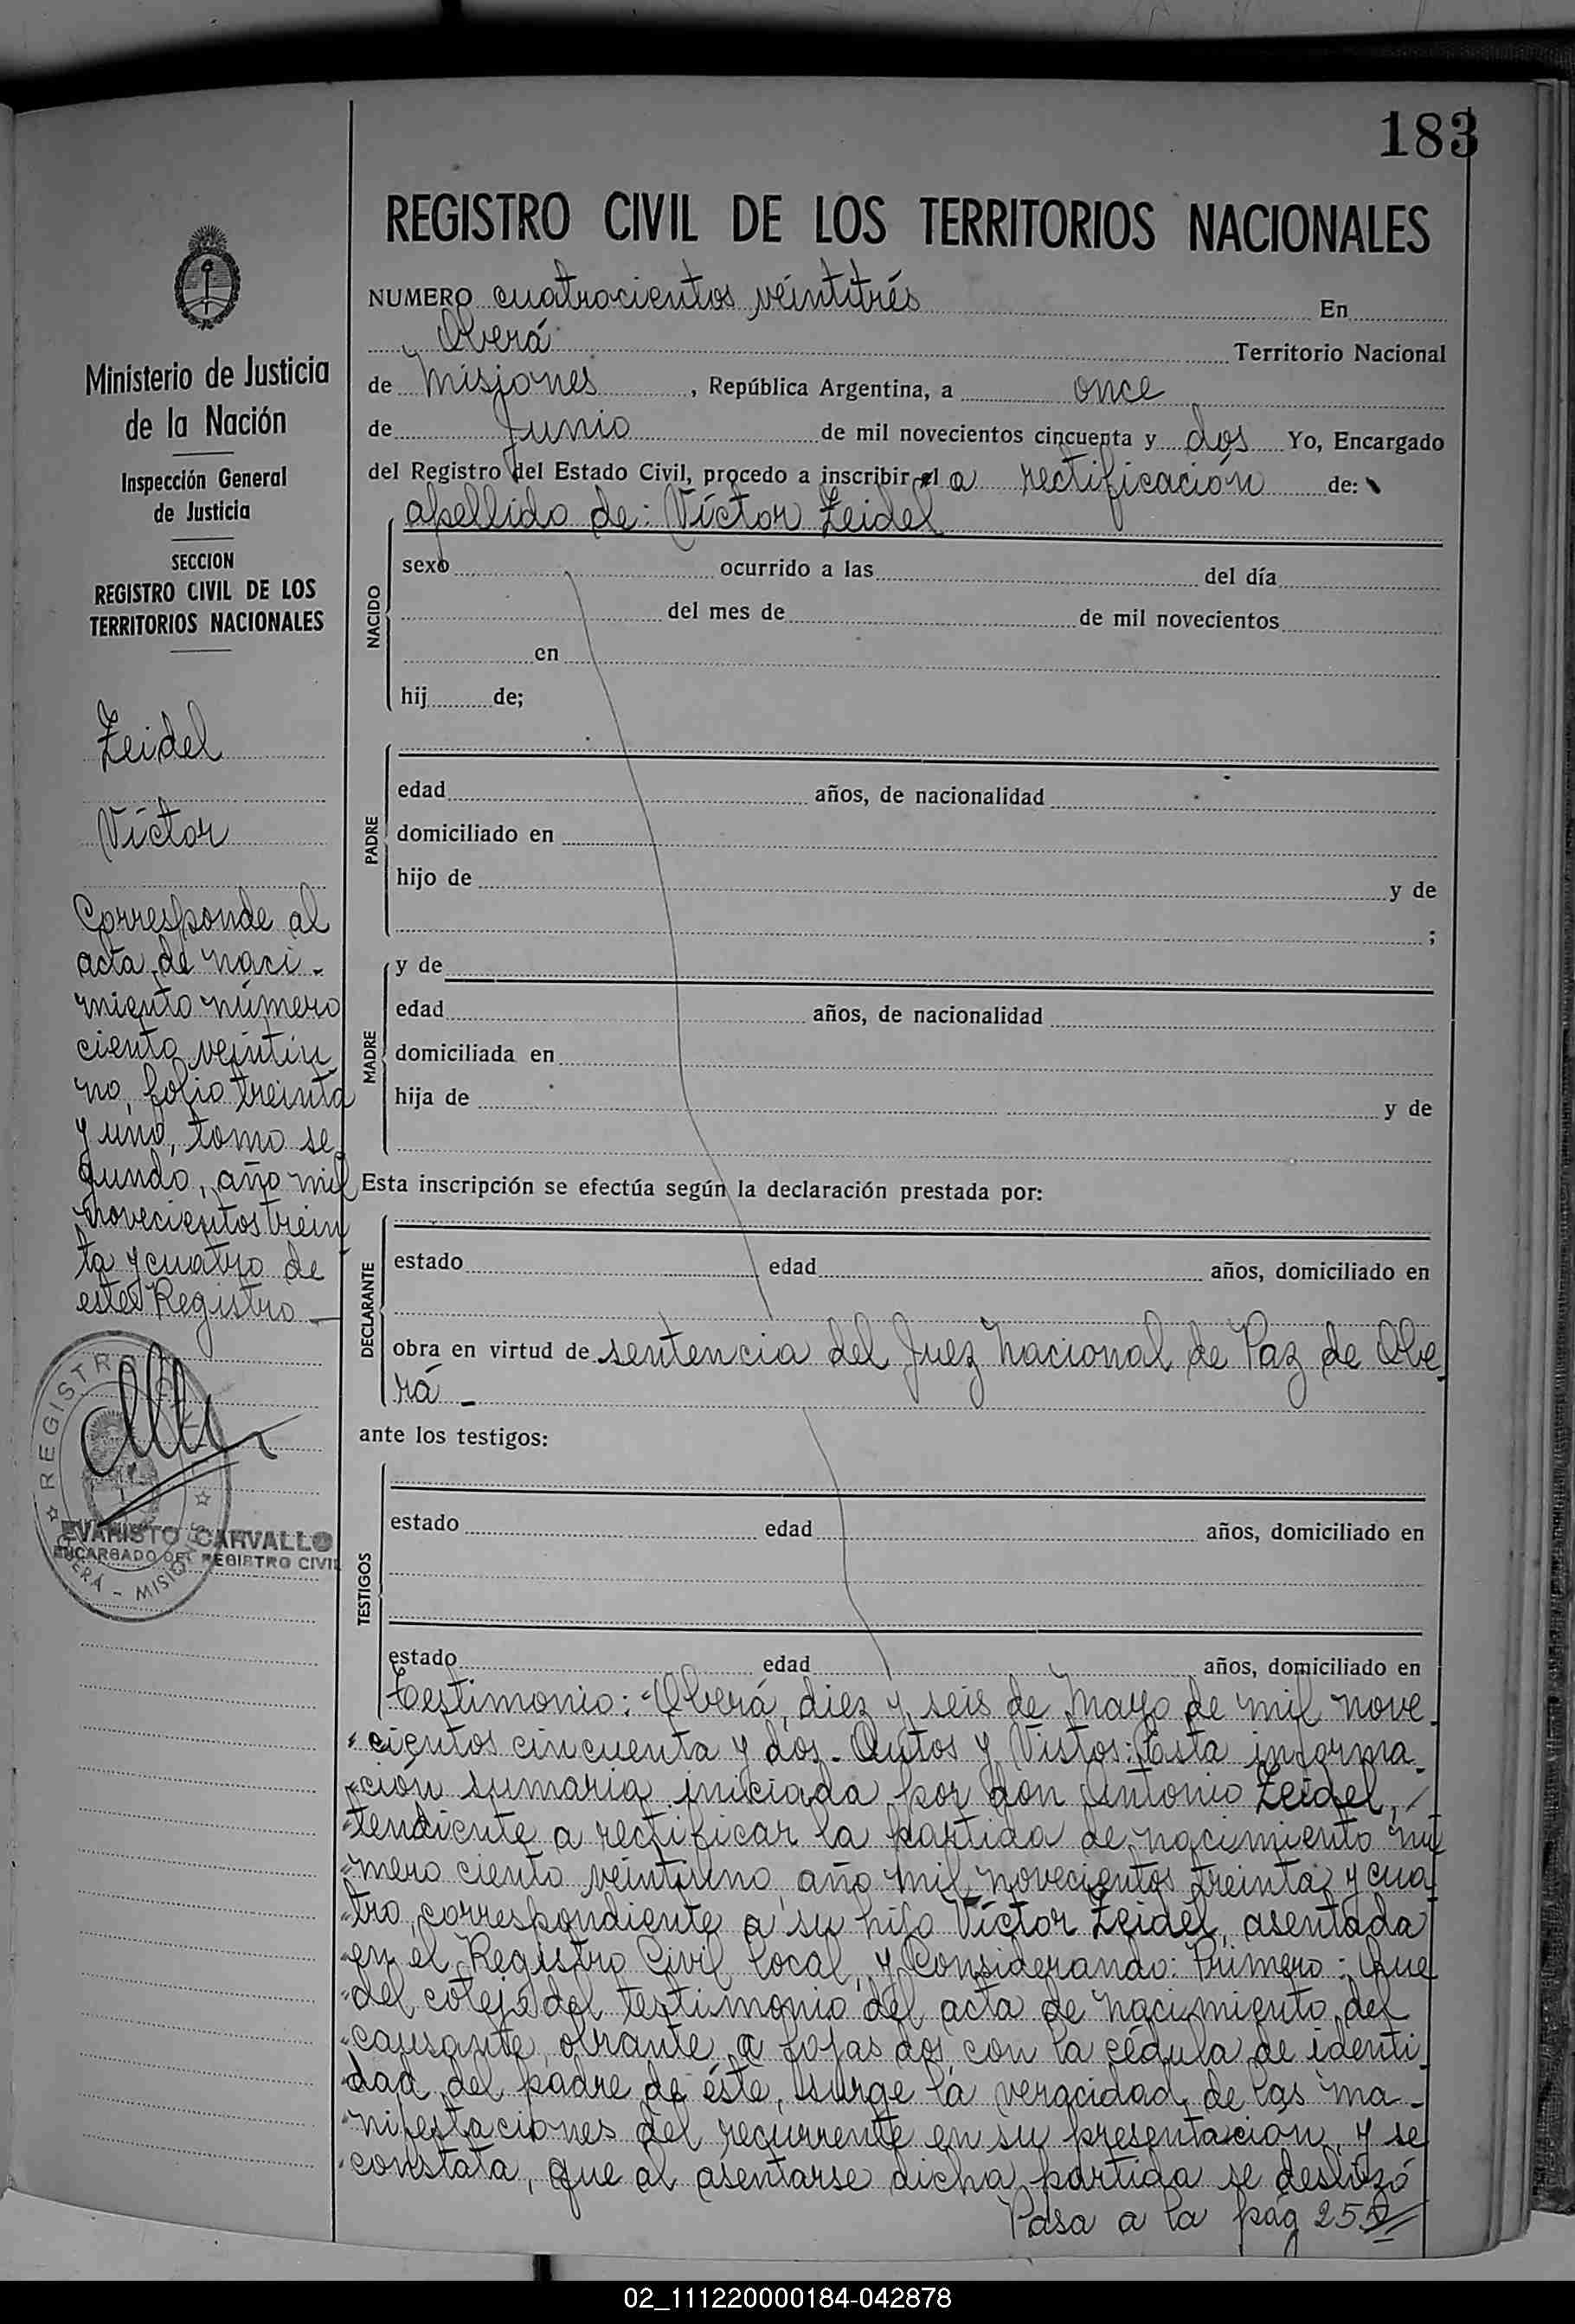 183
REGISTRO CIVIL DE LOS TERRITORIOS NACIONALES
Ministerio de Justicia
de la Nación
Inspección General
de Justicia
SECCION
REGISTRO CIVIL DE LOS
TERRITORIOS NACIONALES
Zeidel
Víctor
Corresponde al
acta de naci-
miento número
ciento veintiu
no, folio treinta
y uno, tomo se
gundo, año mil
novecientos trein
ta y cuatro de
este Registro
REGISTRO CIVIL
OBERÁ - MISIONES
EVARISTO CARVALLO
ENCARGADO DEL REGISTRO CIVIL
NUMERO cuatrocientos veintitrés En
Oberá Territorio Nacional
de Misiones, República Argentina, a once
de Junio de mil novecientos cincuenta y dos Yo, Encargado
del Registro del Estado Civil, procedo a inscribir el a rectificación de:
apellido de: Víctor Zeidel
NACIDO
sexo ocurrido a las del día
del mes de de mil novecientos
en
hij de;
PADRE
edad años, de nacionalidad
domiciliado en
hijo de y de
;
MADRE
y de
edad años, de nacionalidad
domiciliada en
hija de y de
Esta inscripción se efectúa según la declaración prestada por:
DECLARANTE
estado edad años, domiciliado en
obra en virtud de sentencia del Juez Nacional de Paz de Obe
rá -
ante los testigos:
TESTIGOS
estado edad años, domiciliado en
estado edad años, domiciliado en
Testimonio: "Oberá, diez y seis de Mayo de mil nove
"cientos cincuenta y dos. Autos y Vistos: Esta informa
"ción sumaria iniciada por don Antonio Zeidel,
"tendiente a rectificar la partida de nacimiento nú
"mero ciento veintiuno, año mil novecientos treinta y cua
"tro, correspondiente a su hijo Víctor Zeidel, asentada
"en el Registro Civil local, y Considerando: Primero: Que
"del cotejo del testimonio del acta de nacimiento del
"causante, obrante a fojas dos, con la cédula de identi
"dad del padre de éste, surge la veracidad de las ma-
"nifestaciones del recurrente en su presentación, y se
"constata, que al asentarse dicha partida se deslizó
Pasa a la pág 255
02_111220000184-042878